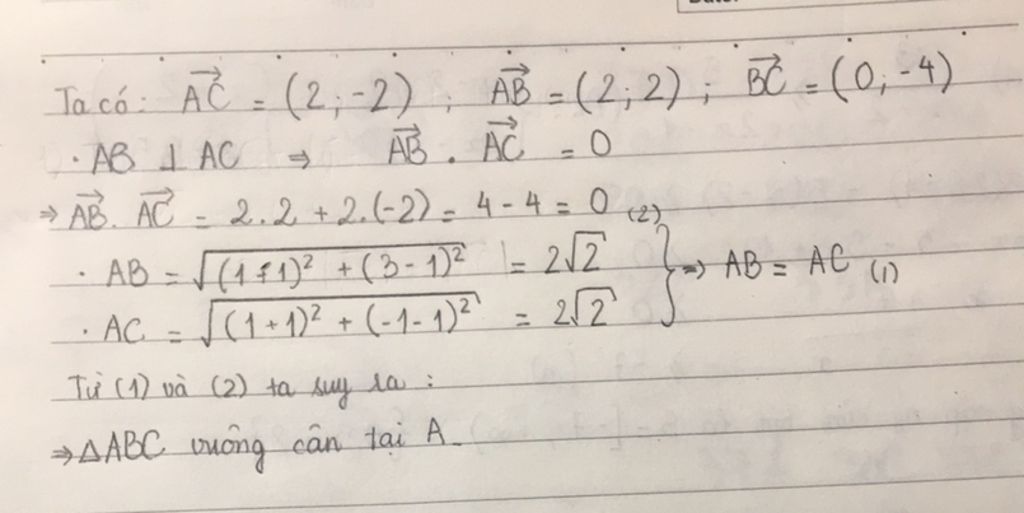 Ta có: \overrightarrow{AC} = (2; -2) ; \overrightarrow{AB} = (2; 2) ; \overrightarrow{BC} = (0; -4)
· AB ⊥ AC ⇒ \overrightarrow{AB} . \overrightarrow{AC} = 0
⇒ \overrightarrow{AB} . \overrightarrow{AC} = 2.2 + 2.(-2) = 4 - 4 = 0 (2)
· AB = √((1+1)² + (3-1)²) = 2√2 } ⇒ AB = AC (1)
· AC = √((1+1)² + (-1-1)²) = 2√2
Từ (1) và (2) ta suy ra :
⇒ △ABC vuông cân tại A